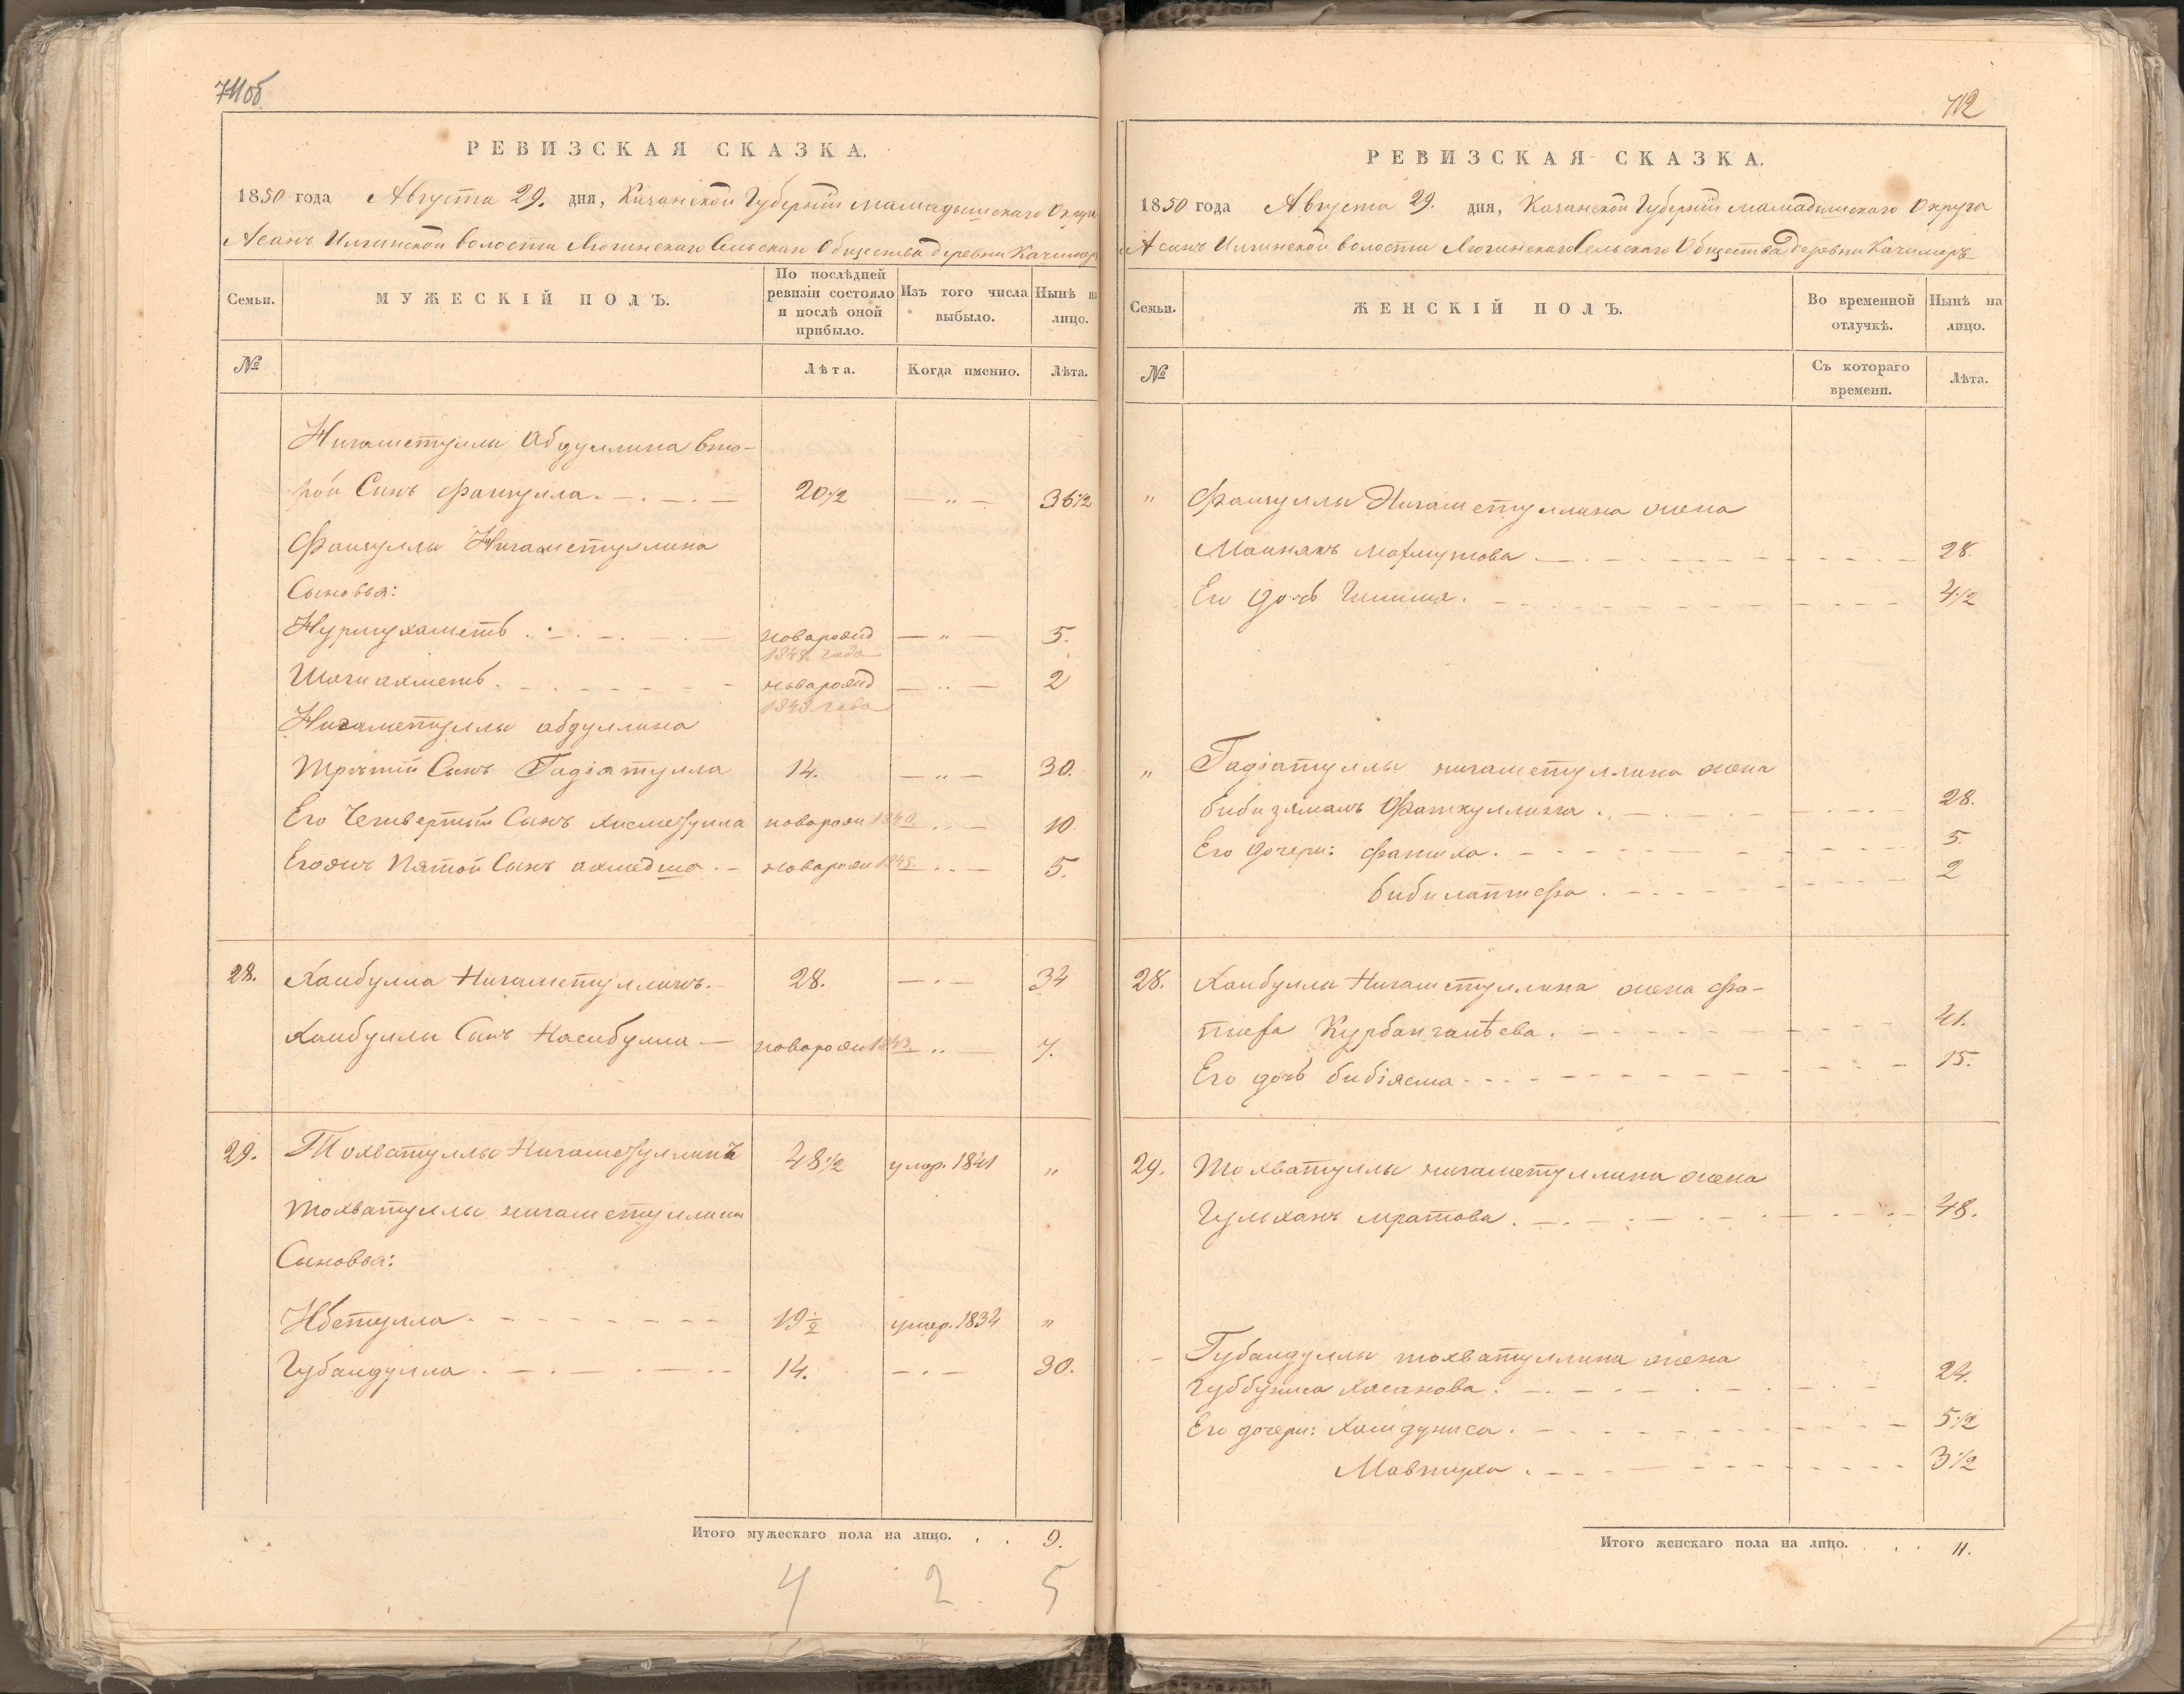 711об
РЕВИЗСКАЯ СКАЗКА.
1850 года Августа 29. дня, Казанской Губерніи мамадышскаго Округа
Асанъ Илгинской волости Люгинскаго Сельскаго Общества деревни Качимеръ
Семьи.
МУЖЕСКІЙ ПОЛЪ.
По послѣдней ревизіи состояло и послѣ оной прибыло.
Изъ того числа выбыло.
Нынѣ на лицо.
№
Лѣта.
Когда именно.
Лѣта.
Нигаметуллы Абдуллина вто-
рой Сынъ Фаизулла. 20 1/2 — " — 36 1/2
Фаизуллы Нигаметуллина
Сыновья:
Нурмухаметъ . новарожд — " — 5.
Шагиахметъ . новарожд — " — 2
Нигаметуллы абдуллина
Третій Сынъ Гадіатулла 14. — " — 30.
Его Четвертый Сынъ Хисметулла новорож 1840. — 10
Егожъ Пятой Сынъ ахмедша . новарож 1845. — 5.
28. Хаибулла Нигаметуллинъ. 28. — 34
Хаибуллы Сынъ Насибулла — новорож 1843. " — 7.
29. Тохватуллы Нигаметуллинъ 48 1/2 умер. 1841 "
Тохватуллы нигаметуллина
Сыновья:
Ибетулла. 19 1/2 умер. 1834 "
Губаидулла . 14. — 30.
Итого мужескаго пола на лицо. . . 9.
4 2 5
712
РЕВИЗСКАЯ СКАЗКА.
1850 года Августа 29. дня, Казанской Губерніи мамадышскаго Округа
Асанъ Илгинской волости Люгинскаго Сельскаго Общества деревни Качимеръ
Семьи.
ЖЕНСКІЙ ПОЛЪ.
Во временной отлучкѣ.
Нынѣ на лицо.
№
Съ котораго времени.
Лѣта.
" Фаизуллы Нигаметуллина жена
Махмутова 28.
Его дочь 4 1/2
" Гадіатуллы нигаметуллина жена
бибизямалъ Фаткуллина . 28.
Его дочери: Фатиха. 5.
бибилатифа . 2
28. Хаибуллы Нигаметуллина жена Фа-
тифа Курбангалѣева . 41.
Его дочь бибіясма 15.
29. Тохватуллы нигаметуллина жена
Гульханъ мратова . 48.
Губаидуллы тохватуллина жена
Хасанова . 24.
Его дочери: Хамдуниса . 5 1/2
Мавтуха . 3 1/2
Итого женскаго пола на лицо. . . 11.